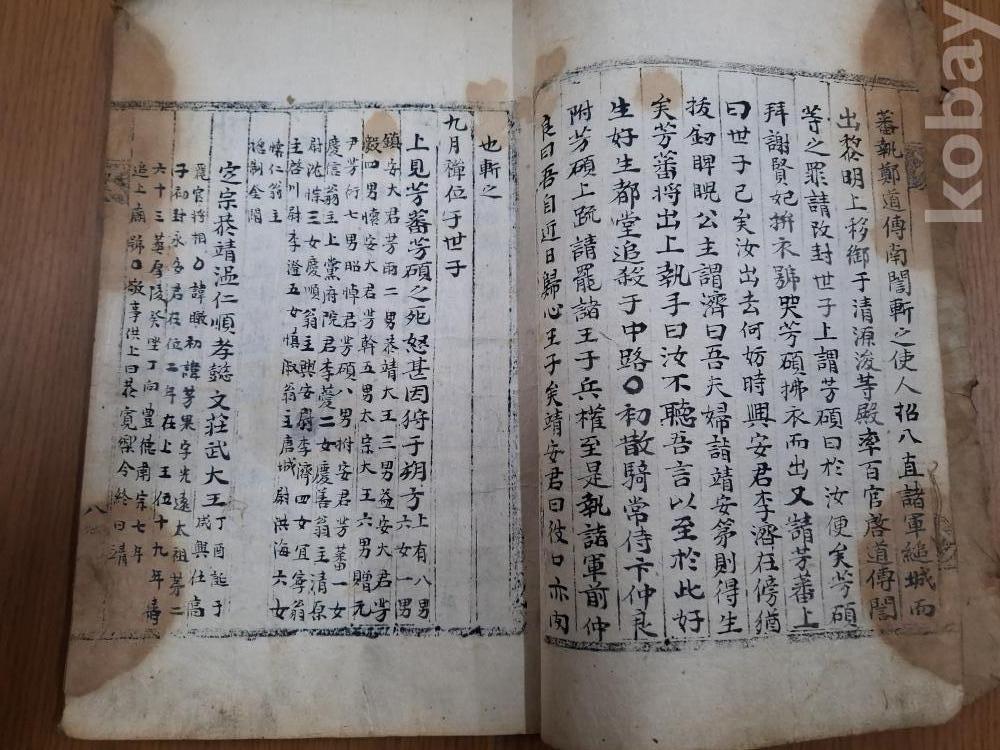 蕃執鄭道傳南誾斬之使人招入直諸軍縋城而
出黎明上移御于清源浚等殿率百官啓道傳誾
等之罪請改封世子上謂芳碩曰於汝便矣芳碩
拜謝賢妃挽衣號哭芳碩拂衣而出又請芳蕃上
曰世子已矣汝出去何妨時興安君李濟在傍猶
拔釼睥睨公主謂濟曰吾夫婦詣靖安第則得生
矣芳蕃將出上執手曰汝不聽吾言以至於此好
生好生都堂追殺于中路○初散騎常侍卞仲良
附芳碩上疏請罷諸王子兵權至是執諸軍前仲
良曰吾自近日歸心王子矣靖安君曰彼口亦肉
也斬之
九月禪位于世子
上見芳蕃芳碩之死怒甚因狩于朔方
上有八男
六女一男
鎭安大君芳雨二男恭靖大王三男益安大君芳
毅四男懷安大君芳幹五男太宗大王六男贈元
尹芳衍七男昭悼君芳碩八男撫安君芳蕃一女
慶信翁主上黨府院君李薆二女慶善翁主清原
尉沈悰三女慶順翁主興安尉李濟四女宜寧翁
主啓川尉李澄五女愼淑翁主唐城尉洪海六女
懷仁翁主
定宗恭靖溫仁順孝懿文莊武大王
丁酉誕于
咸興仕高
麗官將相○諱曔初諱芳果字光遠太祖第二
子初封永安君在位二年在上王位十九年壽
六十三葬厚陵癸坐丁向豊德肅宗七年
追上廟號○敬事供上曰恭寬樂令終曰靖
八
kobay